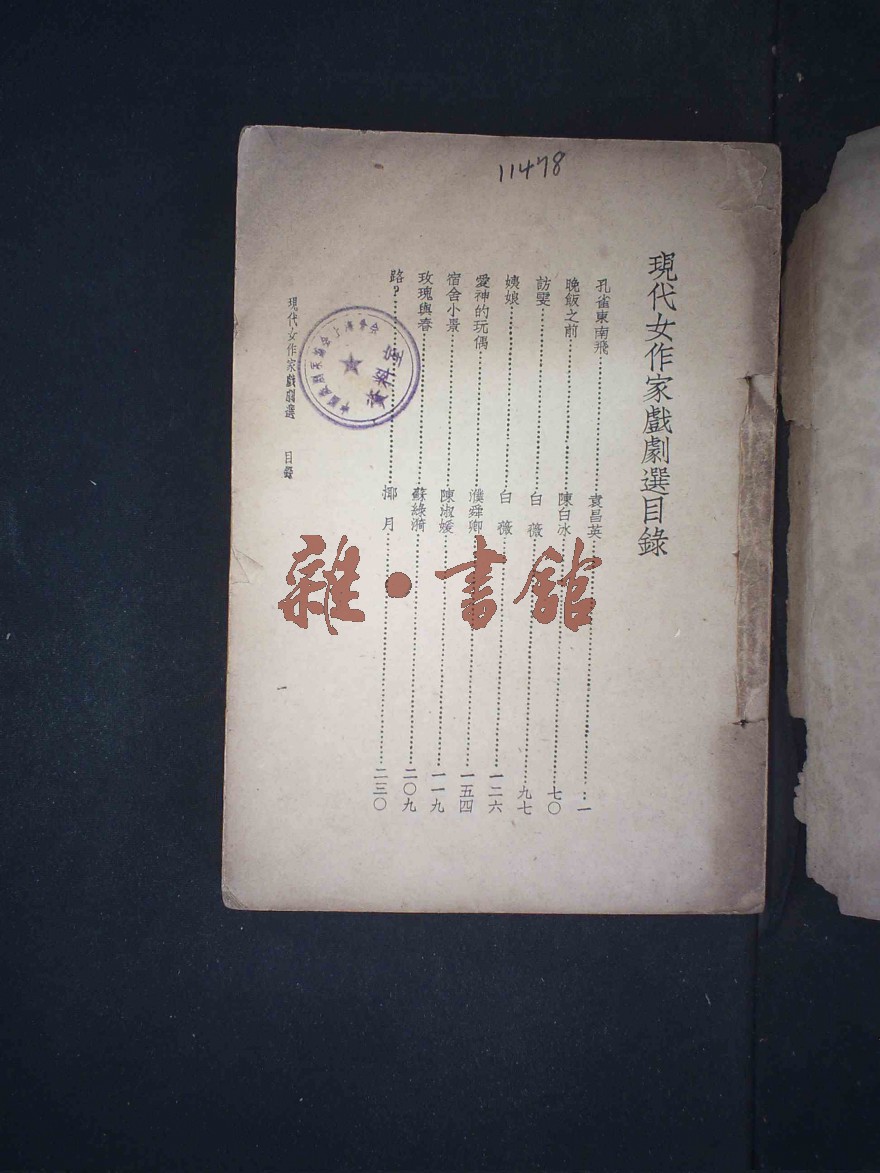 11478
現代女作家戲劇選目錄
孔雀東南飛……袁昌英……一
晚飯之前……陳白冰……七〇
訪雯……白薇……九七
姨娘……白薇……一二六
愛神的玩偶……濮舜卿……一五四
宿舍小景……陳淑媛……一一九
玫瑰與春……蘇綠漪……二〇九
路?……揶月……二三〇
現代女作家戲劇選 目錄
資料室
雜·書館